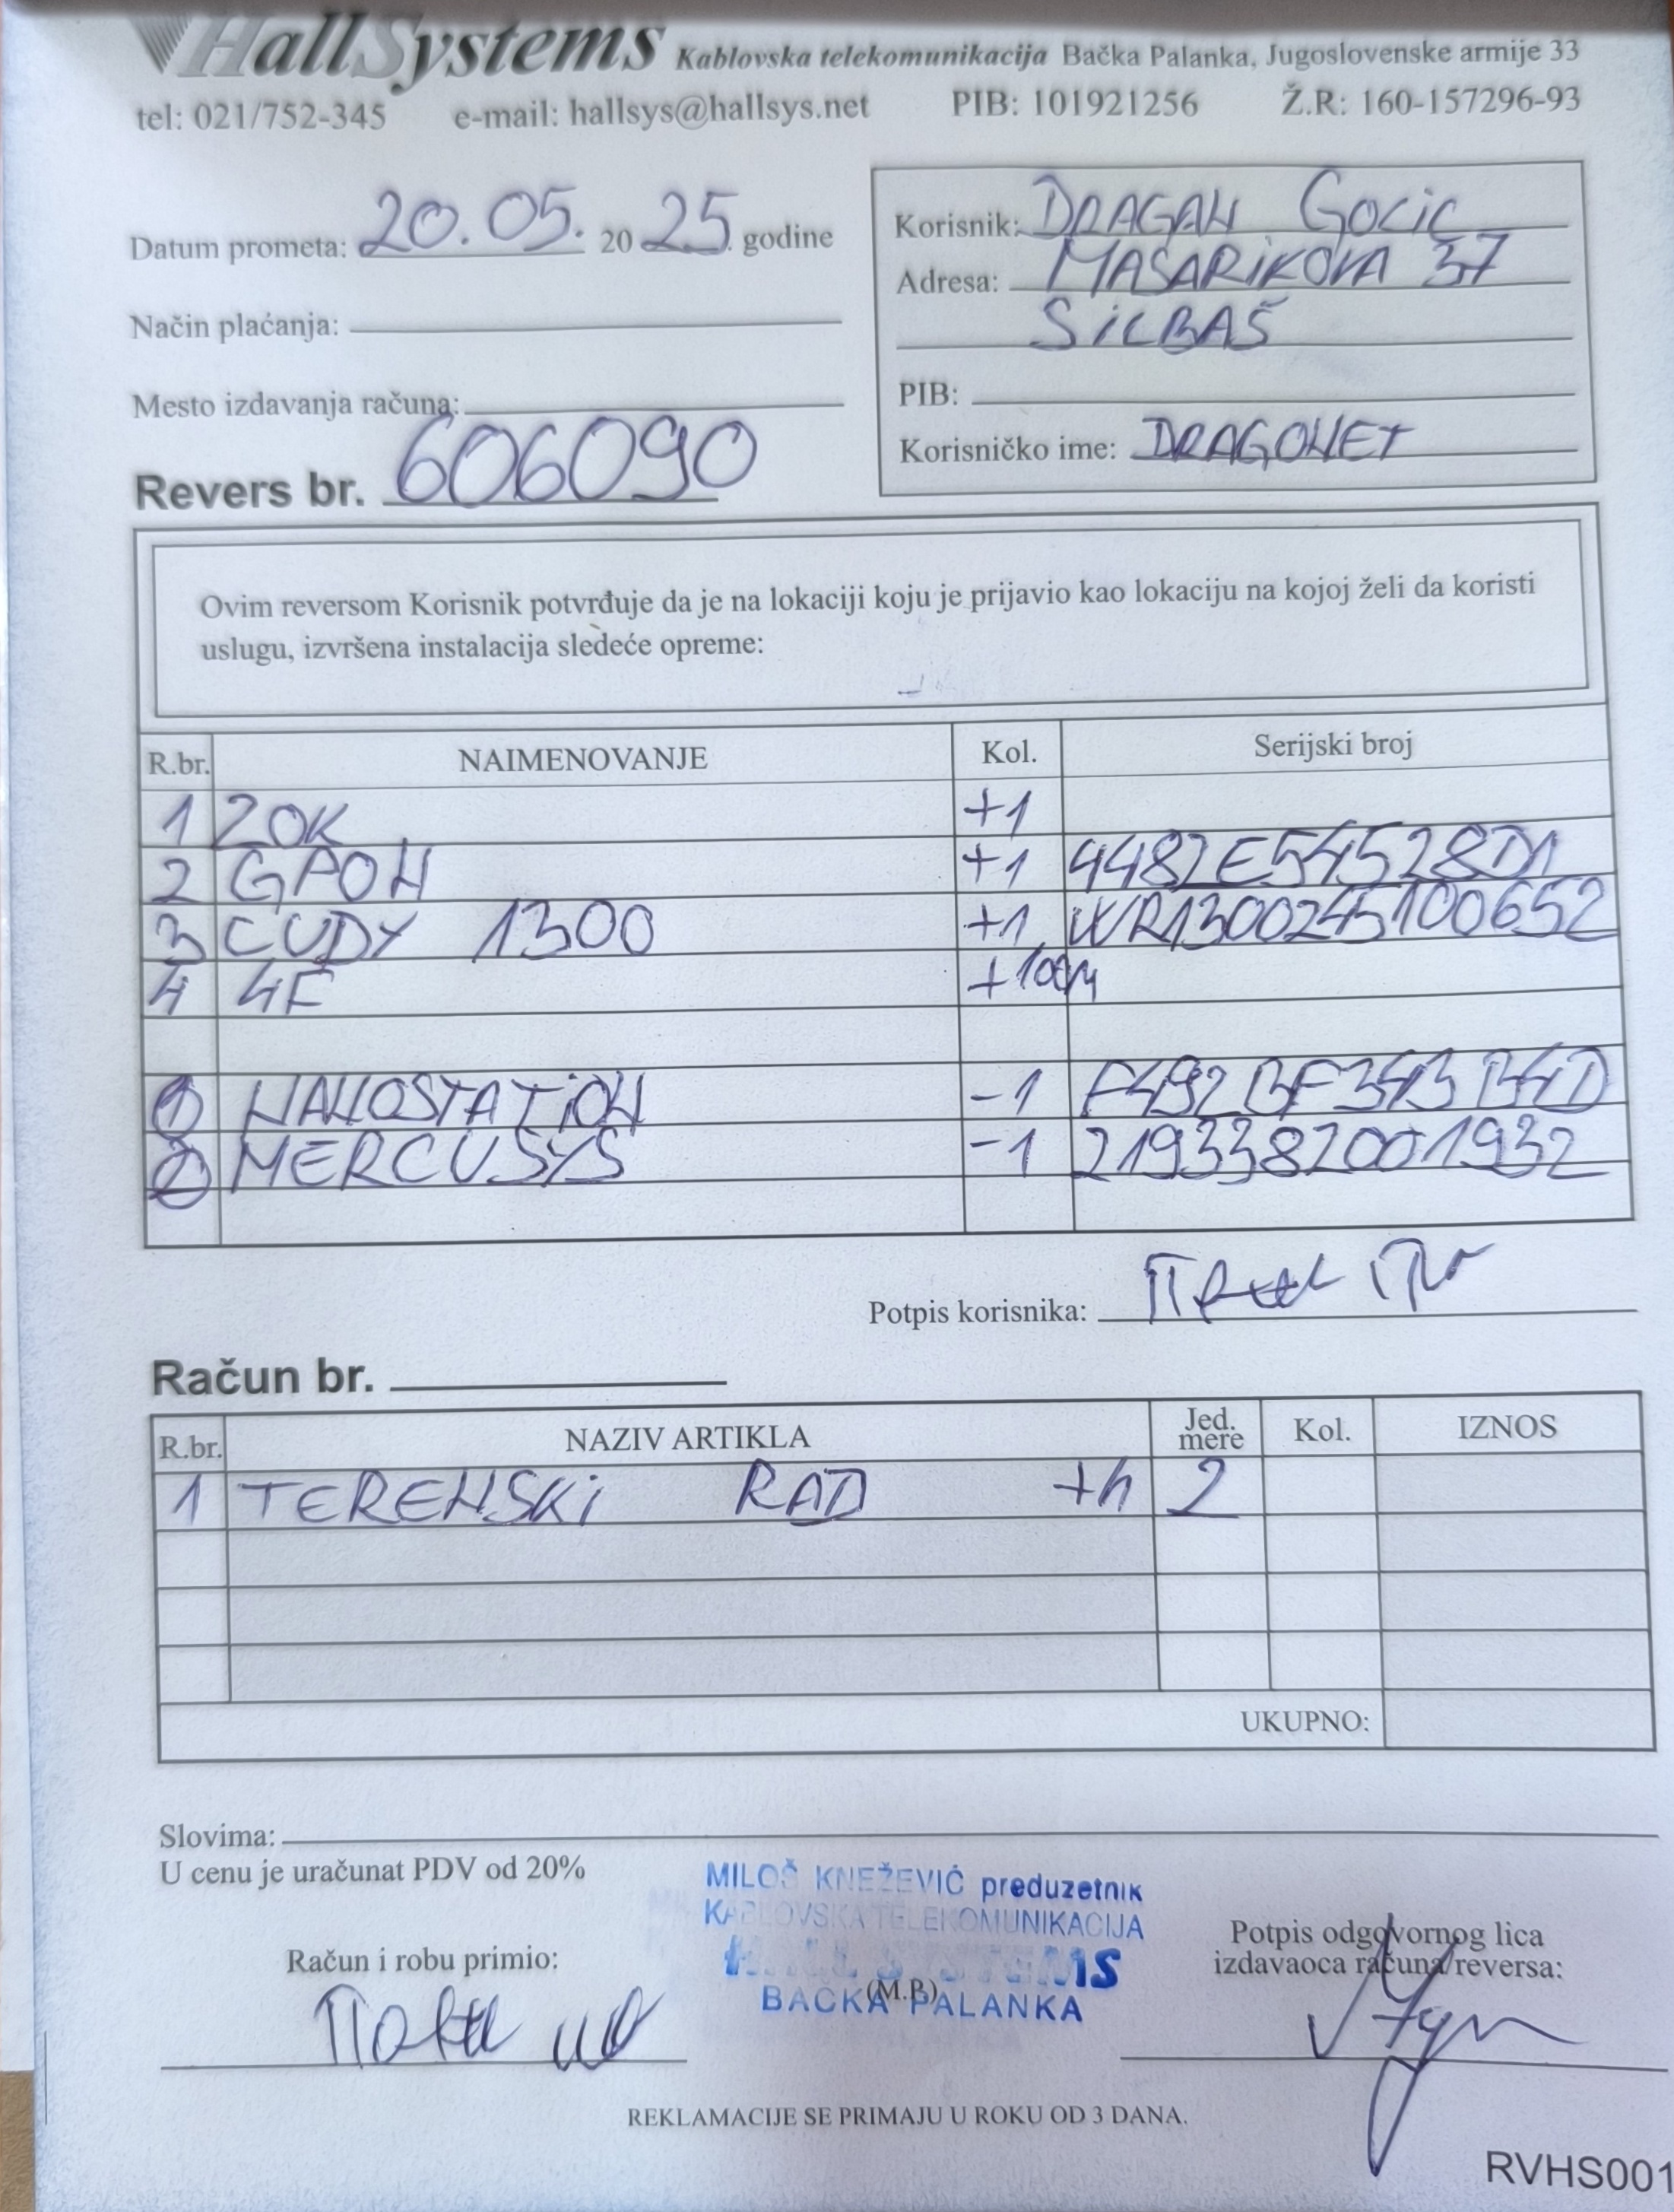 HallSystems Kablovska telekomunikacija Bačka Palanka, Jugoslovenske armije 33
tel: 021/752-345 e-mail: hallsys@hallsys.net PIB: 101921256 Ž.R: 160-157296-93
Datum prometa: 20.05. 2025. godine
Način plaćanja:
Mesto izdavanja računa:
Revers br. 606090
Korisnik: DRAGAN GOCIC
Adresa: MASARIKOVA 37
SILBAŠ
PIB:
Korisničko ime: DRAGONET
Ovim reversom Korisnik potvrđuje da je na lokaciji koju je prijavio kao lokaciju na kojoj želi da koristi
uslugu, izvršena instalacija sledeće opreme:
R.br. NAIMENOVANJE Kol. Serijski broj
1 ZOK +1
2 GPON +1 4482E54528D1
3 CUDY 1300 +1 WR1300245100652
4 4F +100M
1 NANOSTATION -1
2 MERCUSYS -1 2193382001932
Potpis korisnika:
Račun br.
R.br. NAZIV ARTIKLA Jed. mere Kol. IZNOS
1 TERENSKI RAD +h 2
UKUPNO:
Slovima:
U cenu je uračunat PDV od 20%
MILOŠ KNEŽEVIĆ preduzetnik
KABLOVSKA TELEKOMUNIKACIJA
HALL SYSTEMS
BAČKA PALANKA
(M.P.)
Račun i robu primio:
Potpis odgovornog lica
izdavaoca računa/reversa:
REKLAMACIJE SE PRIMAJU U ROKU OD 3 DANA.
RVHS001